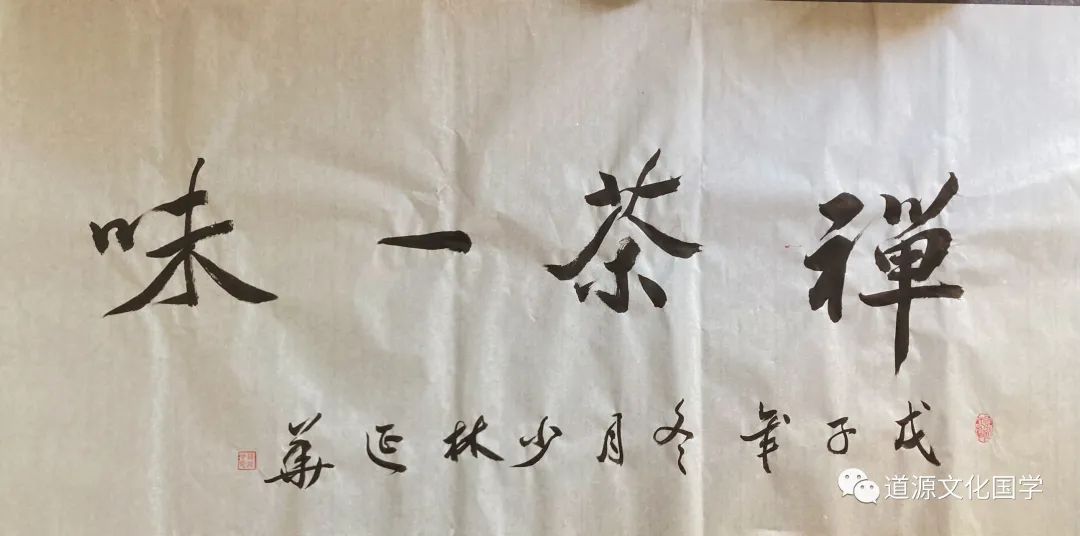 禪茶一味
戊子年冬月少林延華
道源文化国学